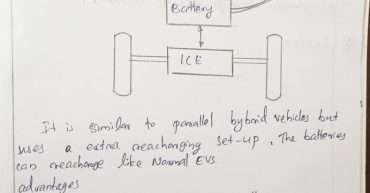 Battery
ICE
It is similar to parallel hybrid vehicles but
uses a extra reachanging set-up. The batteries
can reachange like Normal EVs
advantages